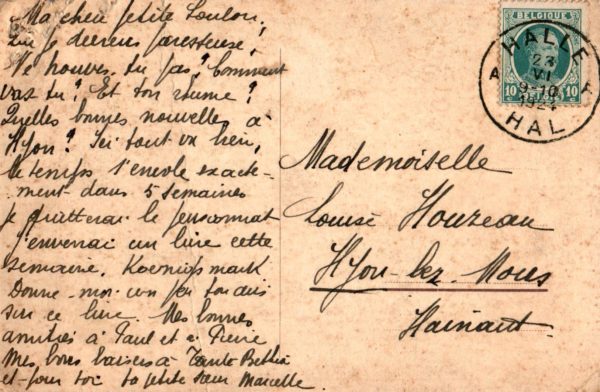 Ma chère petite Loulou,
Que je deviens paresseuse,
Ne trouves-tu pas? Comment
vas tu? Et ton rhume?
Quelles bonnes nouvelles à
Hyon? Ici tout va bien,
le temps s'envole exacte-
ment dans 5 semaines
je quitterai le pensionnat
J'enverrai un livre cette
semaine. Koenigsmark
Donne-moi un peu ton avis
sur ce livre. Mes bonnes
amitiés à Paul et à Pierre
Mes bons baisers à Tante Bertha
et pour toi ta petite sœur Marcelle.
BELGIQUE BELGIË
10 c 10 c
HALLE
A F
23
VI
9-10
HAL
Mademoiselle
Louise Houzeau
Hyon-lez-Mons
Hainaut.